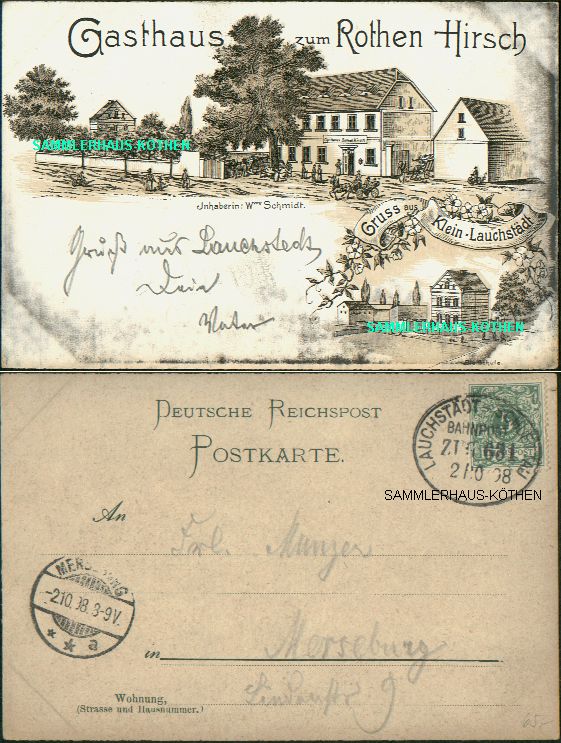 Gasthaus zum Rothen Hirsch
SAMMLERHAUS-KÖTHEN
Inhaberin: Wwe Schmidt.
Gruss aus
Klein-Lauchstädt
Gruß aus Lauchstedt
Dein
Vater
SAMMLERHAUS-KÖTHEN
DEUTSCHE REICHSPOST
POSTKARTE.
LAUCHSTÄDT
BAHNPOST
ZUG 631
2 10 98
SAMMLERHAUS-KÖTHEN
An
Frl. Munzer
MERSEBURG
-2.10.98.8-9V.
* * a
in Merseburg
Wohnung,
(Strasse und Hausnummer.)
9
65.-